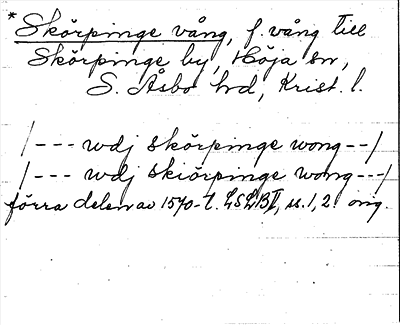 *Skörpinge vång, f. vång till
Skörpinge by, Höja sn,
S. Åsbo hd, Krist. l.
/--- wdj skörpinge wong --/
/--- wdj skiörpinge wong ---/
förra delen av 1570-t. LSLBI, s. 1, 2 orig.